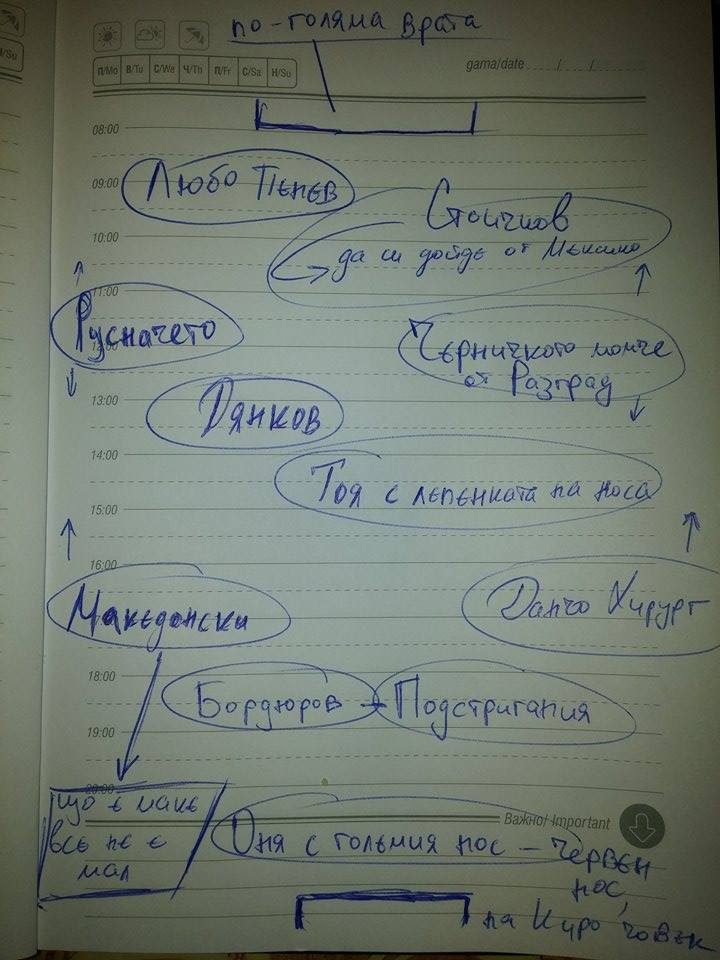 по-голяма врата
П/Mo В/Tu С/We Ч/Th П/Fr С/Sa Н/Su
дата/date / /
08:00
09:00
Любо Пенев
Стоичков
10:00
да си дойде от Мексико
11:00
Русначето
Черничкото момче
от Разград
13:00
Дянков
14:00
Тоя с лепенката на носа
15:00
16:00
Македонски
Данчо Хирург
18:00
Бордюров - Подстригания
19:00
20:00
що е маке
все не е
мал
Важно/ Important
Оня с големия нос - червен
нос,
на Киро човек